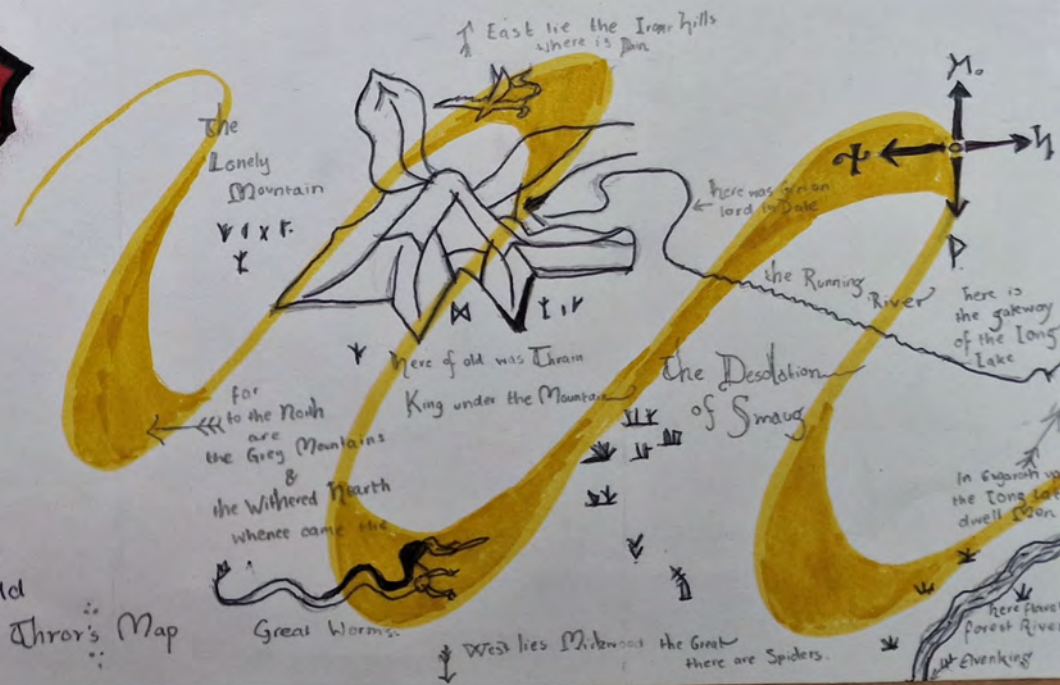 East lie the Iron hills
where is Dain
The
Lonely
Mountain
here was
lord in Dale
the Running
River
here is
the gateway
of the Long
Lake
here of old was Thrain
King under the Mountain
The Desolation
of Smaug
far
to the North
are
the Grey Mountains
&
the Withered Hearth
whence came the
Great Worms.
In
the Long
dwell Men
here
forest River
Elvenking
Thror's Map
West lies Mirkwood the Great
there are Spiders.